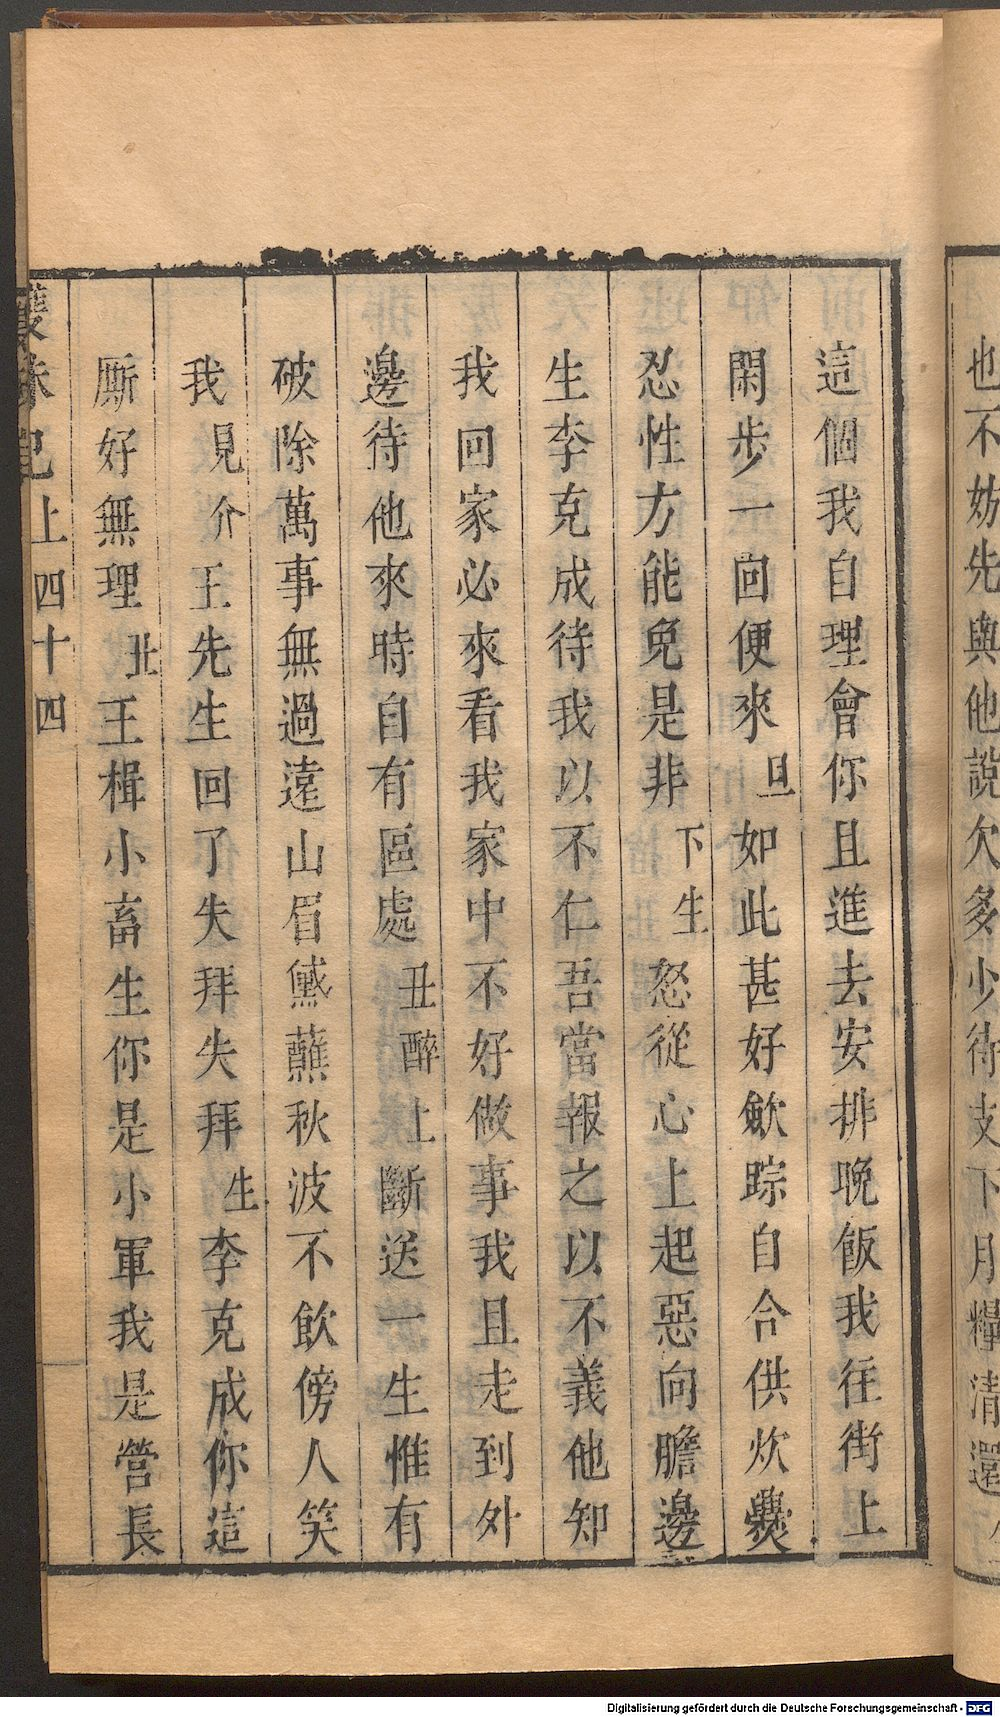 也不妨先與他說欠多少待支下月糧清還
這個我自理會你且進去安排晚飯我往街上
閑步一囘便來旦如此甚好歛踪自合供炊㸑
忍性方能免是非下生怒從心上起惡向膽邊
生李克成待我以不仁吾當報之以不義他知
我回家必來看我家中不好做事我且走到外
邊待他來時自有區處丑醉上斷送一生惟有
破除萬事無過遠山眉黛蘸秋波不飲傍人笑
我見介王先生回了失拜失拜生李克成你這
厮好無理丑王楫小畜生你是小軍我是營長
雙珠記上四十四
Digitalisierung gefördert durch die Deutsche Forschungsgemeinschaft - DFG